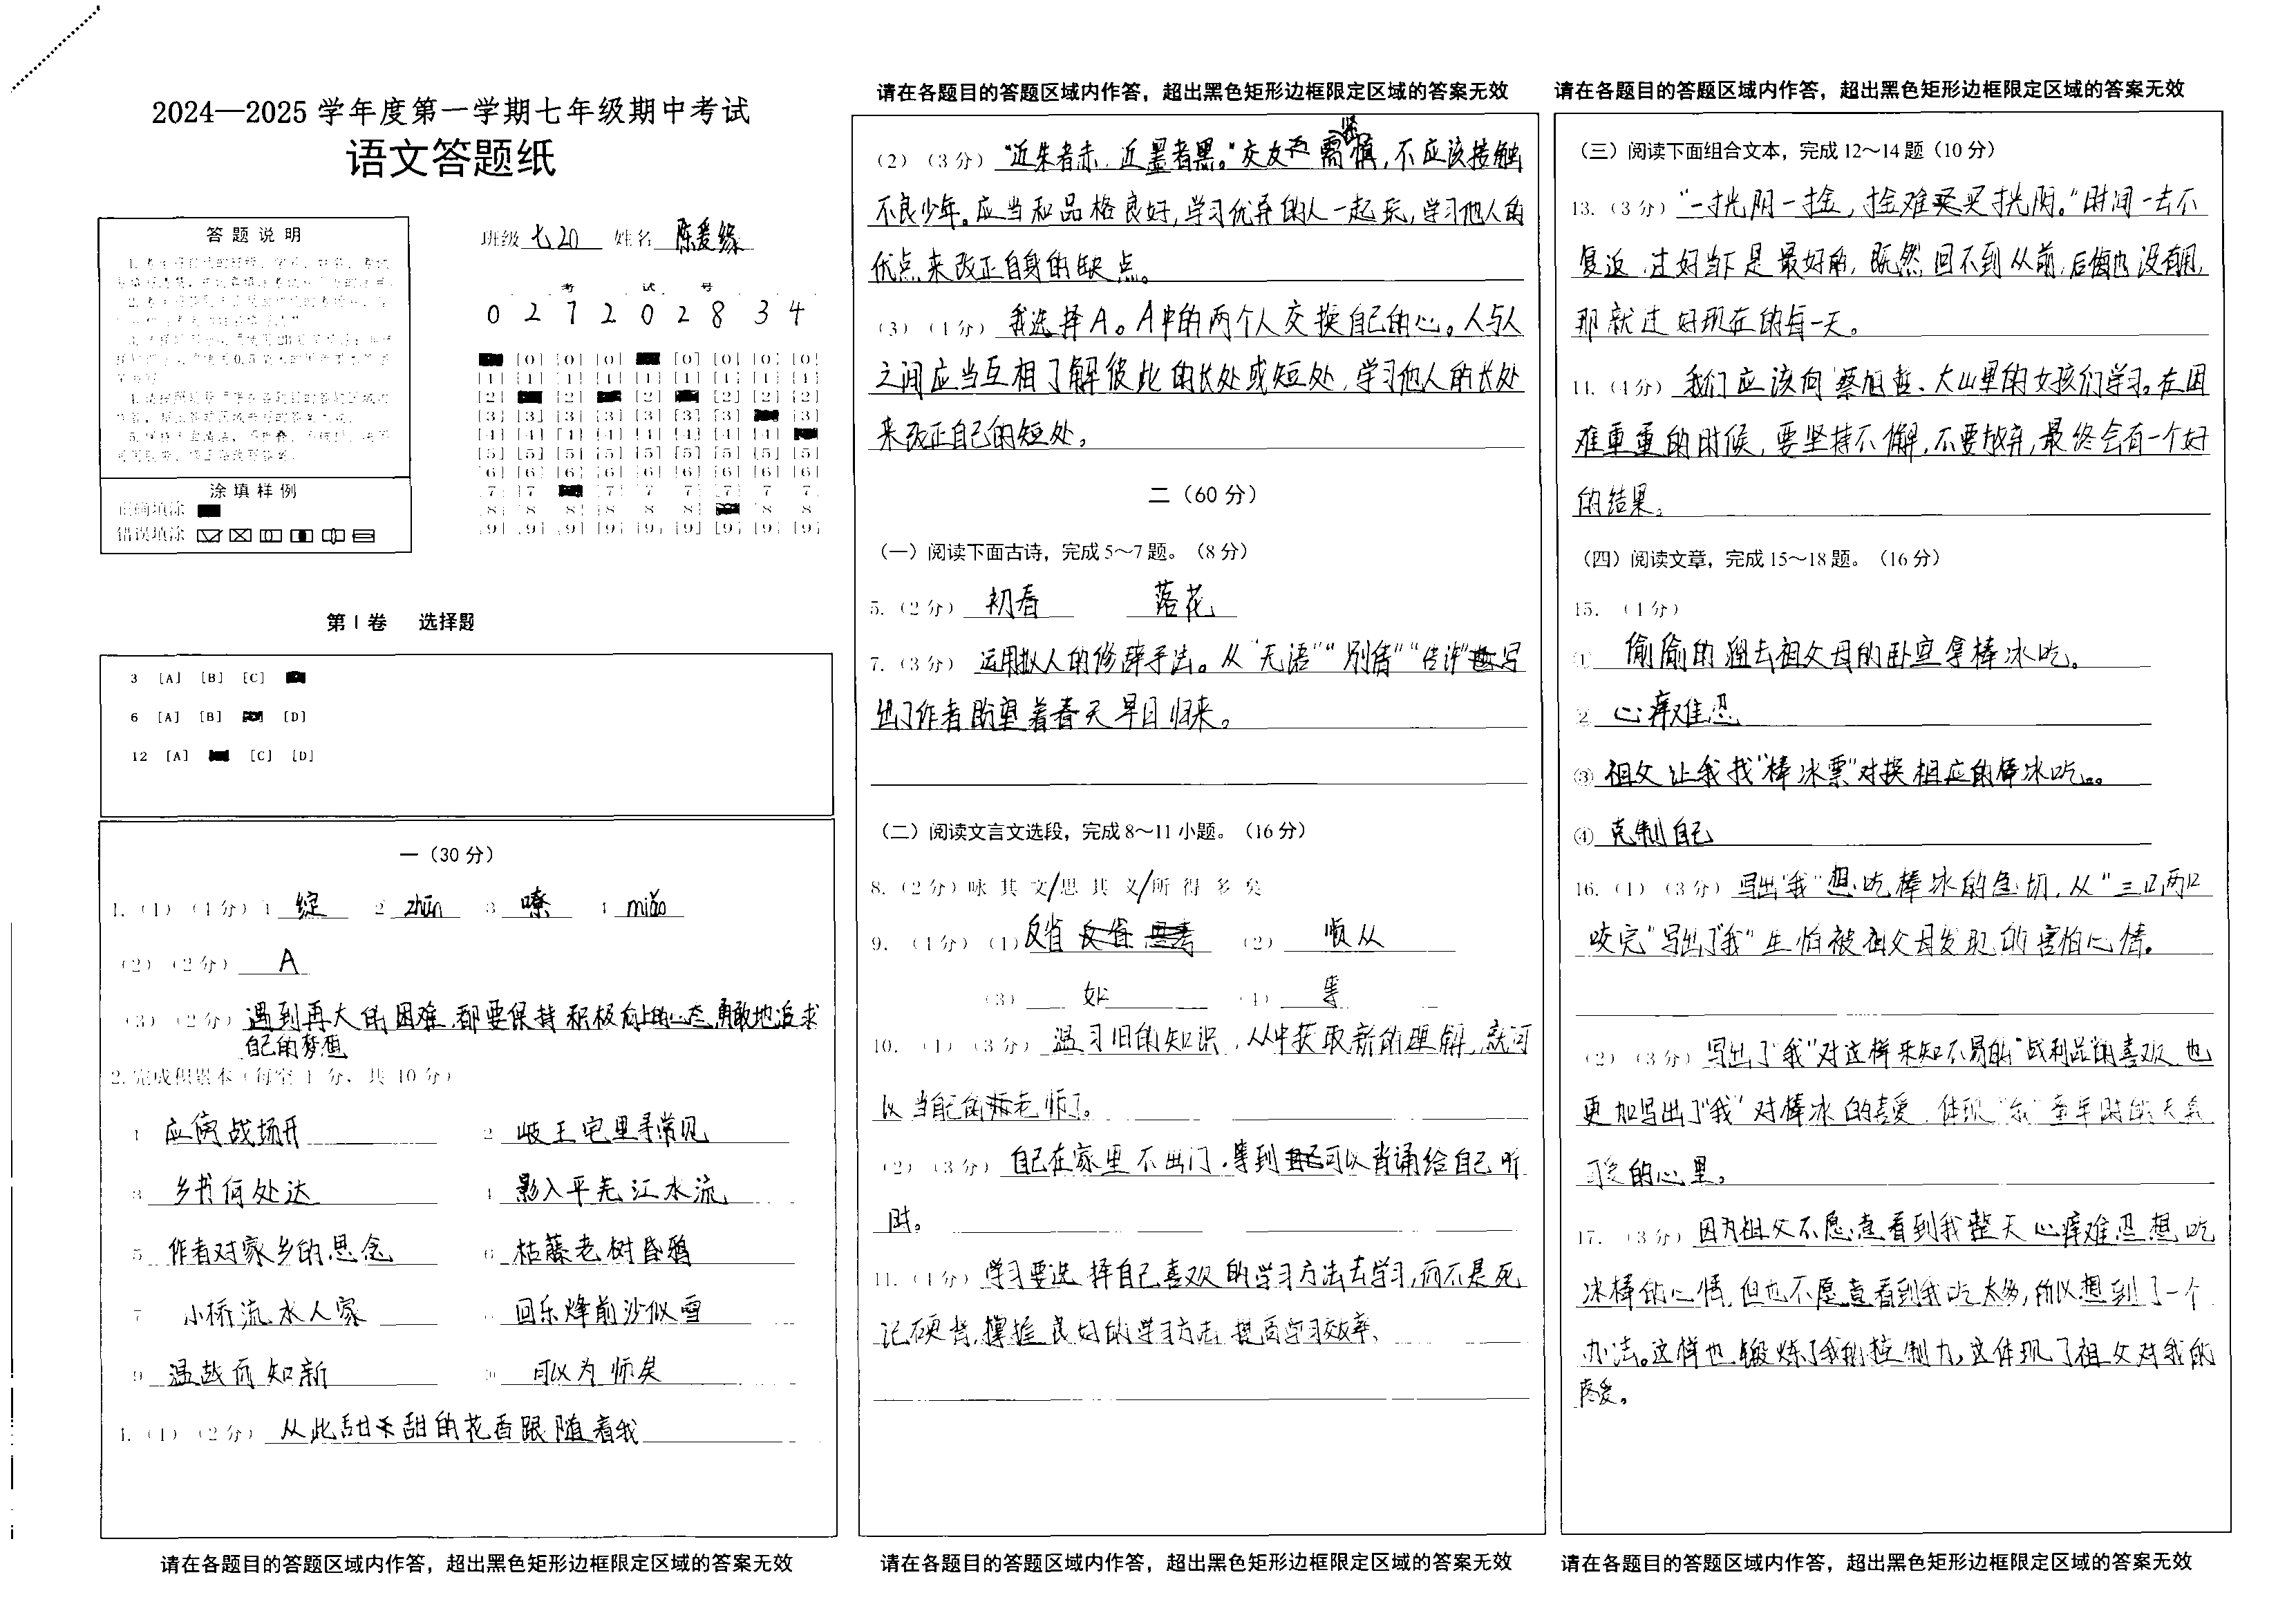 2024—2025 学年度第一学期七年级期中考试
语文答题纸
答 题 说 明
涂 填 样 例
正确填涂
错误填涂
班级 七20 姓名 陈爱缘
考 试 号
0 2 7 2 0 2 8 3 4
[0] [0] [0] [0] [0] [0] [0]
[1] [1] [1] [1] [1] [1] [1] [1] [1]
[2] [2] [2] [2] [2] [2]
[3] [3] [3] [3] [3] [3] [3] [3]
[4] [4] [4] [4] [4] [4] [4] [4]
[5] [5] [5] [5] [5] [5] [5] [5] [5]
[6] [6] [6] [6] [6] [6] [6] [6] [6]
[7] [7] [7] [7] [7] [7] [7] [7]
[8] [8] [8] [8] [8] [8] [8] [8]
[9] [9] [9] [9] [9] [9] [9] [9] [9]
第 I 卷 选择题
3 [A] [B] [C]
6 [A] [B] [D]
12 [A] [C] [D]
一（30 分）
1.（1）（4分）1 绽 2 zhūn 3 嘹 4 miǎo
（2）（2分） A
（3）（2分） 遇到再大的困难,都要保持积极向上的心态,勇敢地追求
自己的梦想
2.完成积累本（每空 1 分，共 10 分）
1 应傍战场开 2 岐王宅里寻常见
3 乡书何处达 4 影入平羌江水流
5 作者对家乡的思念 6 枯藤老树昏鸦
7 小桥流水人家 8 回乐烽前沙似雪
9 温故而知新 10 可以为师矣
4.（1）（2分） 从此甜不甜的花香跟随着我
请在各题目的答题区域内作答，超出黑色矩形边框限定区域的答案无效
请在各题目的答题区域内作答，超出黑色矩形边框限定区域的答案无效
（2）（3分） “近朱者赤,近墨者黑。”交友 需慎,不应该接触
不良少年。应当和品格良好,学习优异的人一起玩,学习他人的
优点来改正自身的缺点。
（3）（4分） 我选择A。A中的两个人交换自己的心。人与人
之间应当互相了解彼此的长处或短处,学习他人的长处
来改正自己的短处。
二（60 分）
（一）阅读下面古诗，完成 5～7 题。（8 分）
5.（2分） 初春 落花
7.（3分） 运用拟人的修辞手法。从“无语”“别倩”“传许”写
出了作者盼望着春天早日归来。
（二）阅读文言文选段，完成 8～11 小题。（16 分）
8.（2分）咏 其 文/思 其 义/所 得 多 矣
9.（4分）（1）反省 （2） 顺从
（3） 如 （4） 等
10.（1）（3分） 温习旧的知识,从中获取新的理解,就可
以当自己的老师了。
（2）（3分） 自己在家里不出门,等到可以背诵给自己听
时。
11.（4分） 学习要选择自己喜欢的学习方法去学习,而不是死
记硬背,撑握良好的学习方法,提高学习效率。
请在各题目的答题区域内作答，超出黑色矩形边框限定区域的答案无效
请在各题目的答题区域内作答，超出黑色矩形边框限定区域的答案无效
（三）阅读下面组合文本，完成 12～14 题（10 分）
13.（3分） “一光阴一金,金难买光阴。”时间一去不
复返,过好当下是最好的,既然回不到从前,后悔也没有用,
那就过好现在的每一天。
14.（4分） 我们应该向蔡旭哲、大山里的女孩们学习。在困
难重重的时候,要坚持不懈,不要放弃,最终会有一个好
的结果。
（四）阅读文章，完成 15～18 题。（16 分）
15.（4分）
① 偷偷的溜去祖父母的卧室拿棒冰吃。
② 心痒难忍
③ 祖父让我找“棒冰票”对换相应的棒冰吃。
④ 克制自己
16.（1）（3分） 写出“我”想吃棒冰的急切,从“三口两口
咬完”写出了“我”生怕被祖父母发现的害怕心情。
（2）（3分） 写出了“我”对这样来知不易的“战利品”的喜欢,也
更加写出了“我”对棒冰的喜爱,体现“我”童年时的天真
可爱的心里。
17.（3分） 因为祖父不愿意看到我整天心痒难忍想吃
冰棒的心情,但也不愿意看到我吃太多,所以想到了一个
办法。这样也锻炼了我的控制力,这体现了祖父对我的
疼爱。
请在各题目的答题区域内作答，超出黑色矩形边框限定区域的答案无效